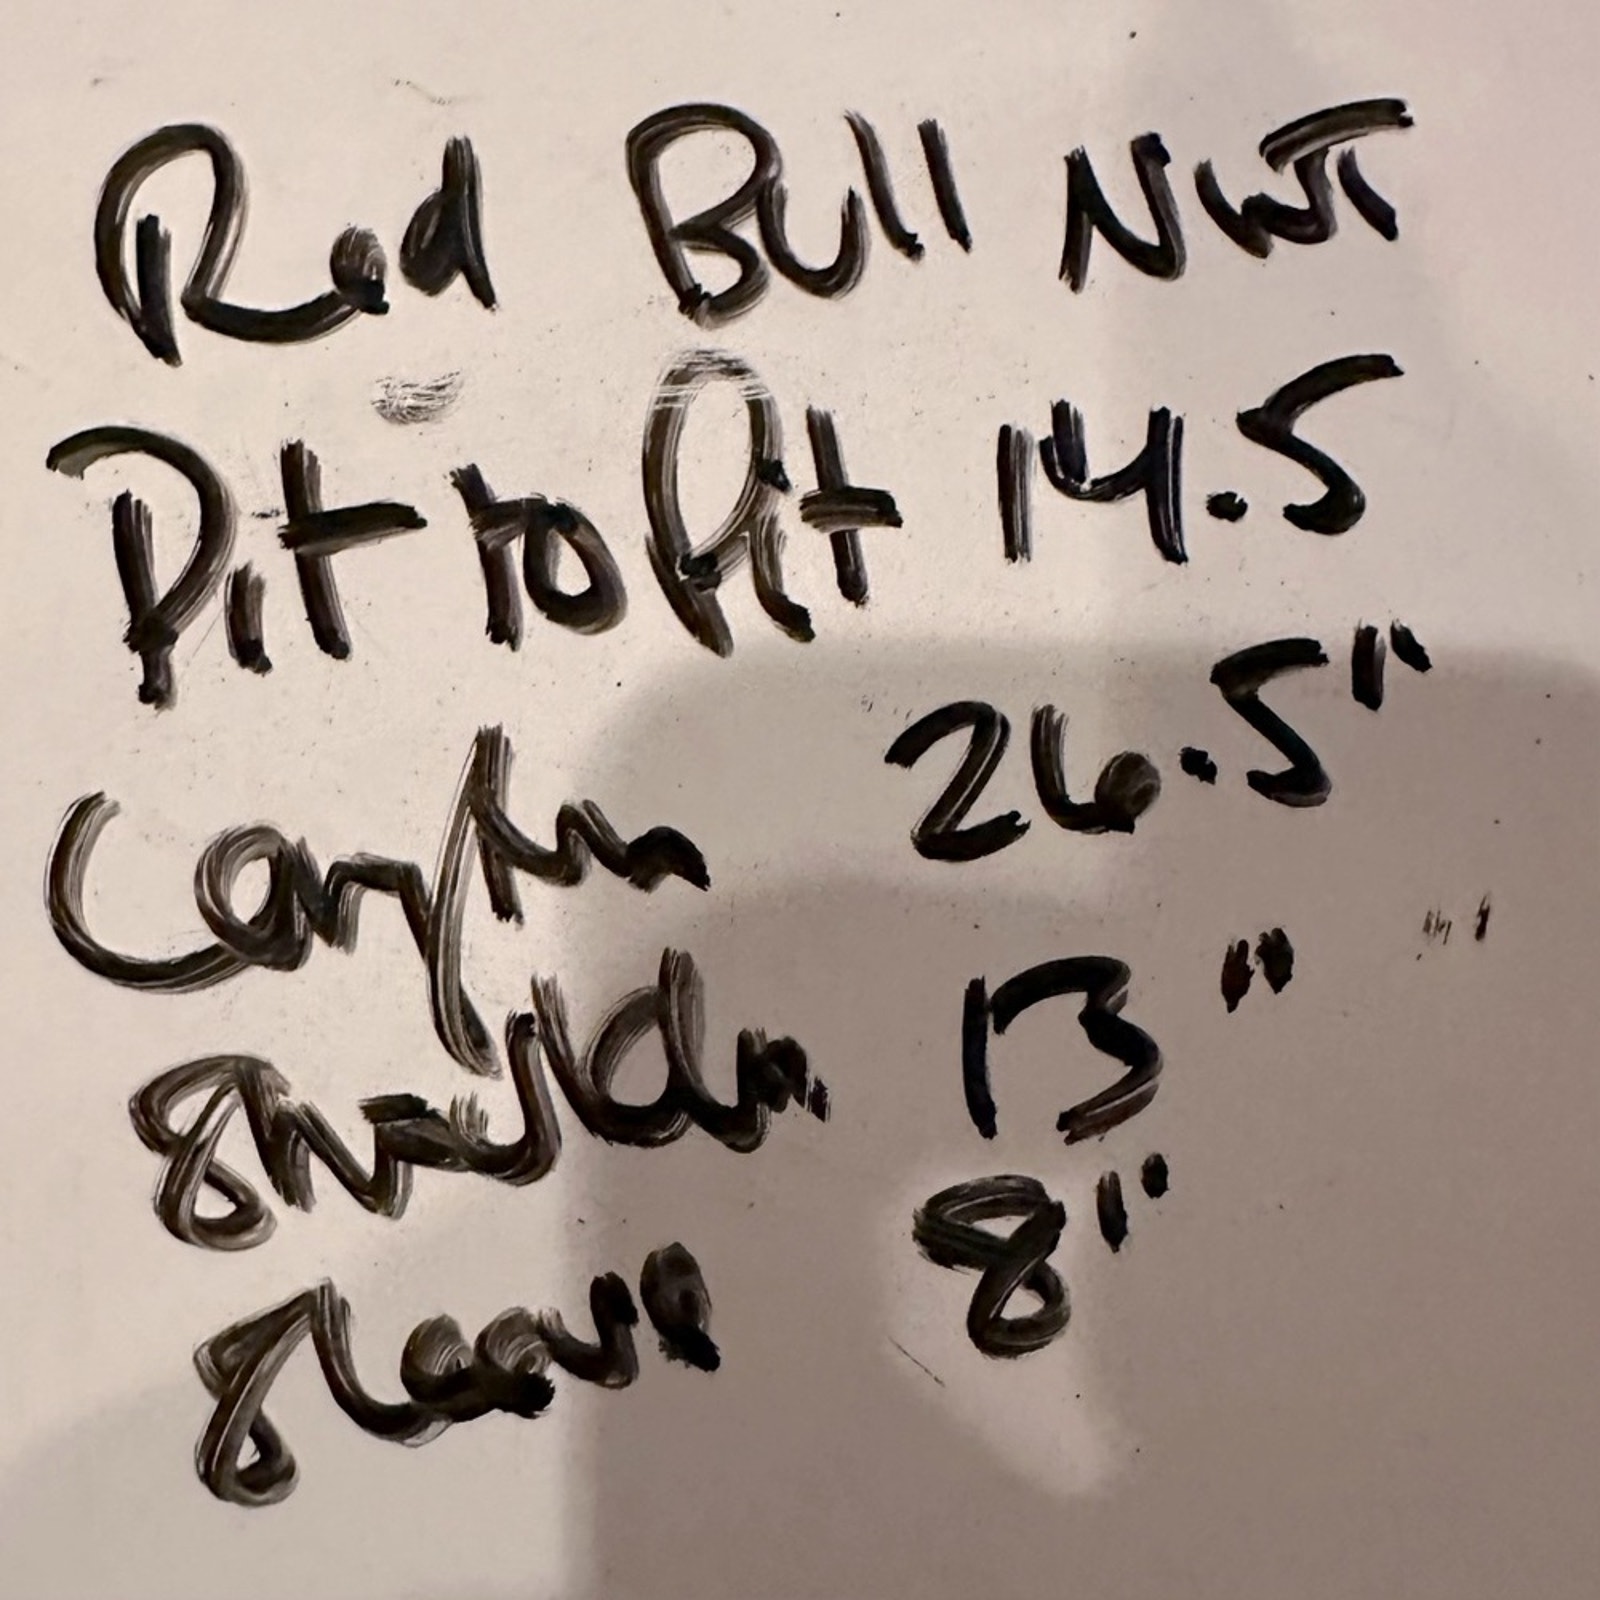 Red Bull NWT
Pit to Pit 14.5
Length 26.5"
Shoulder 13"
Sleeve 8"